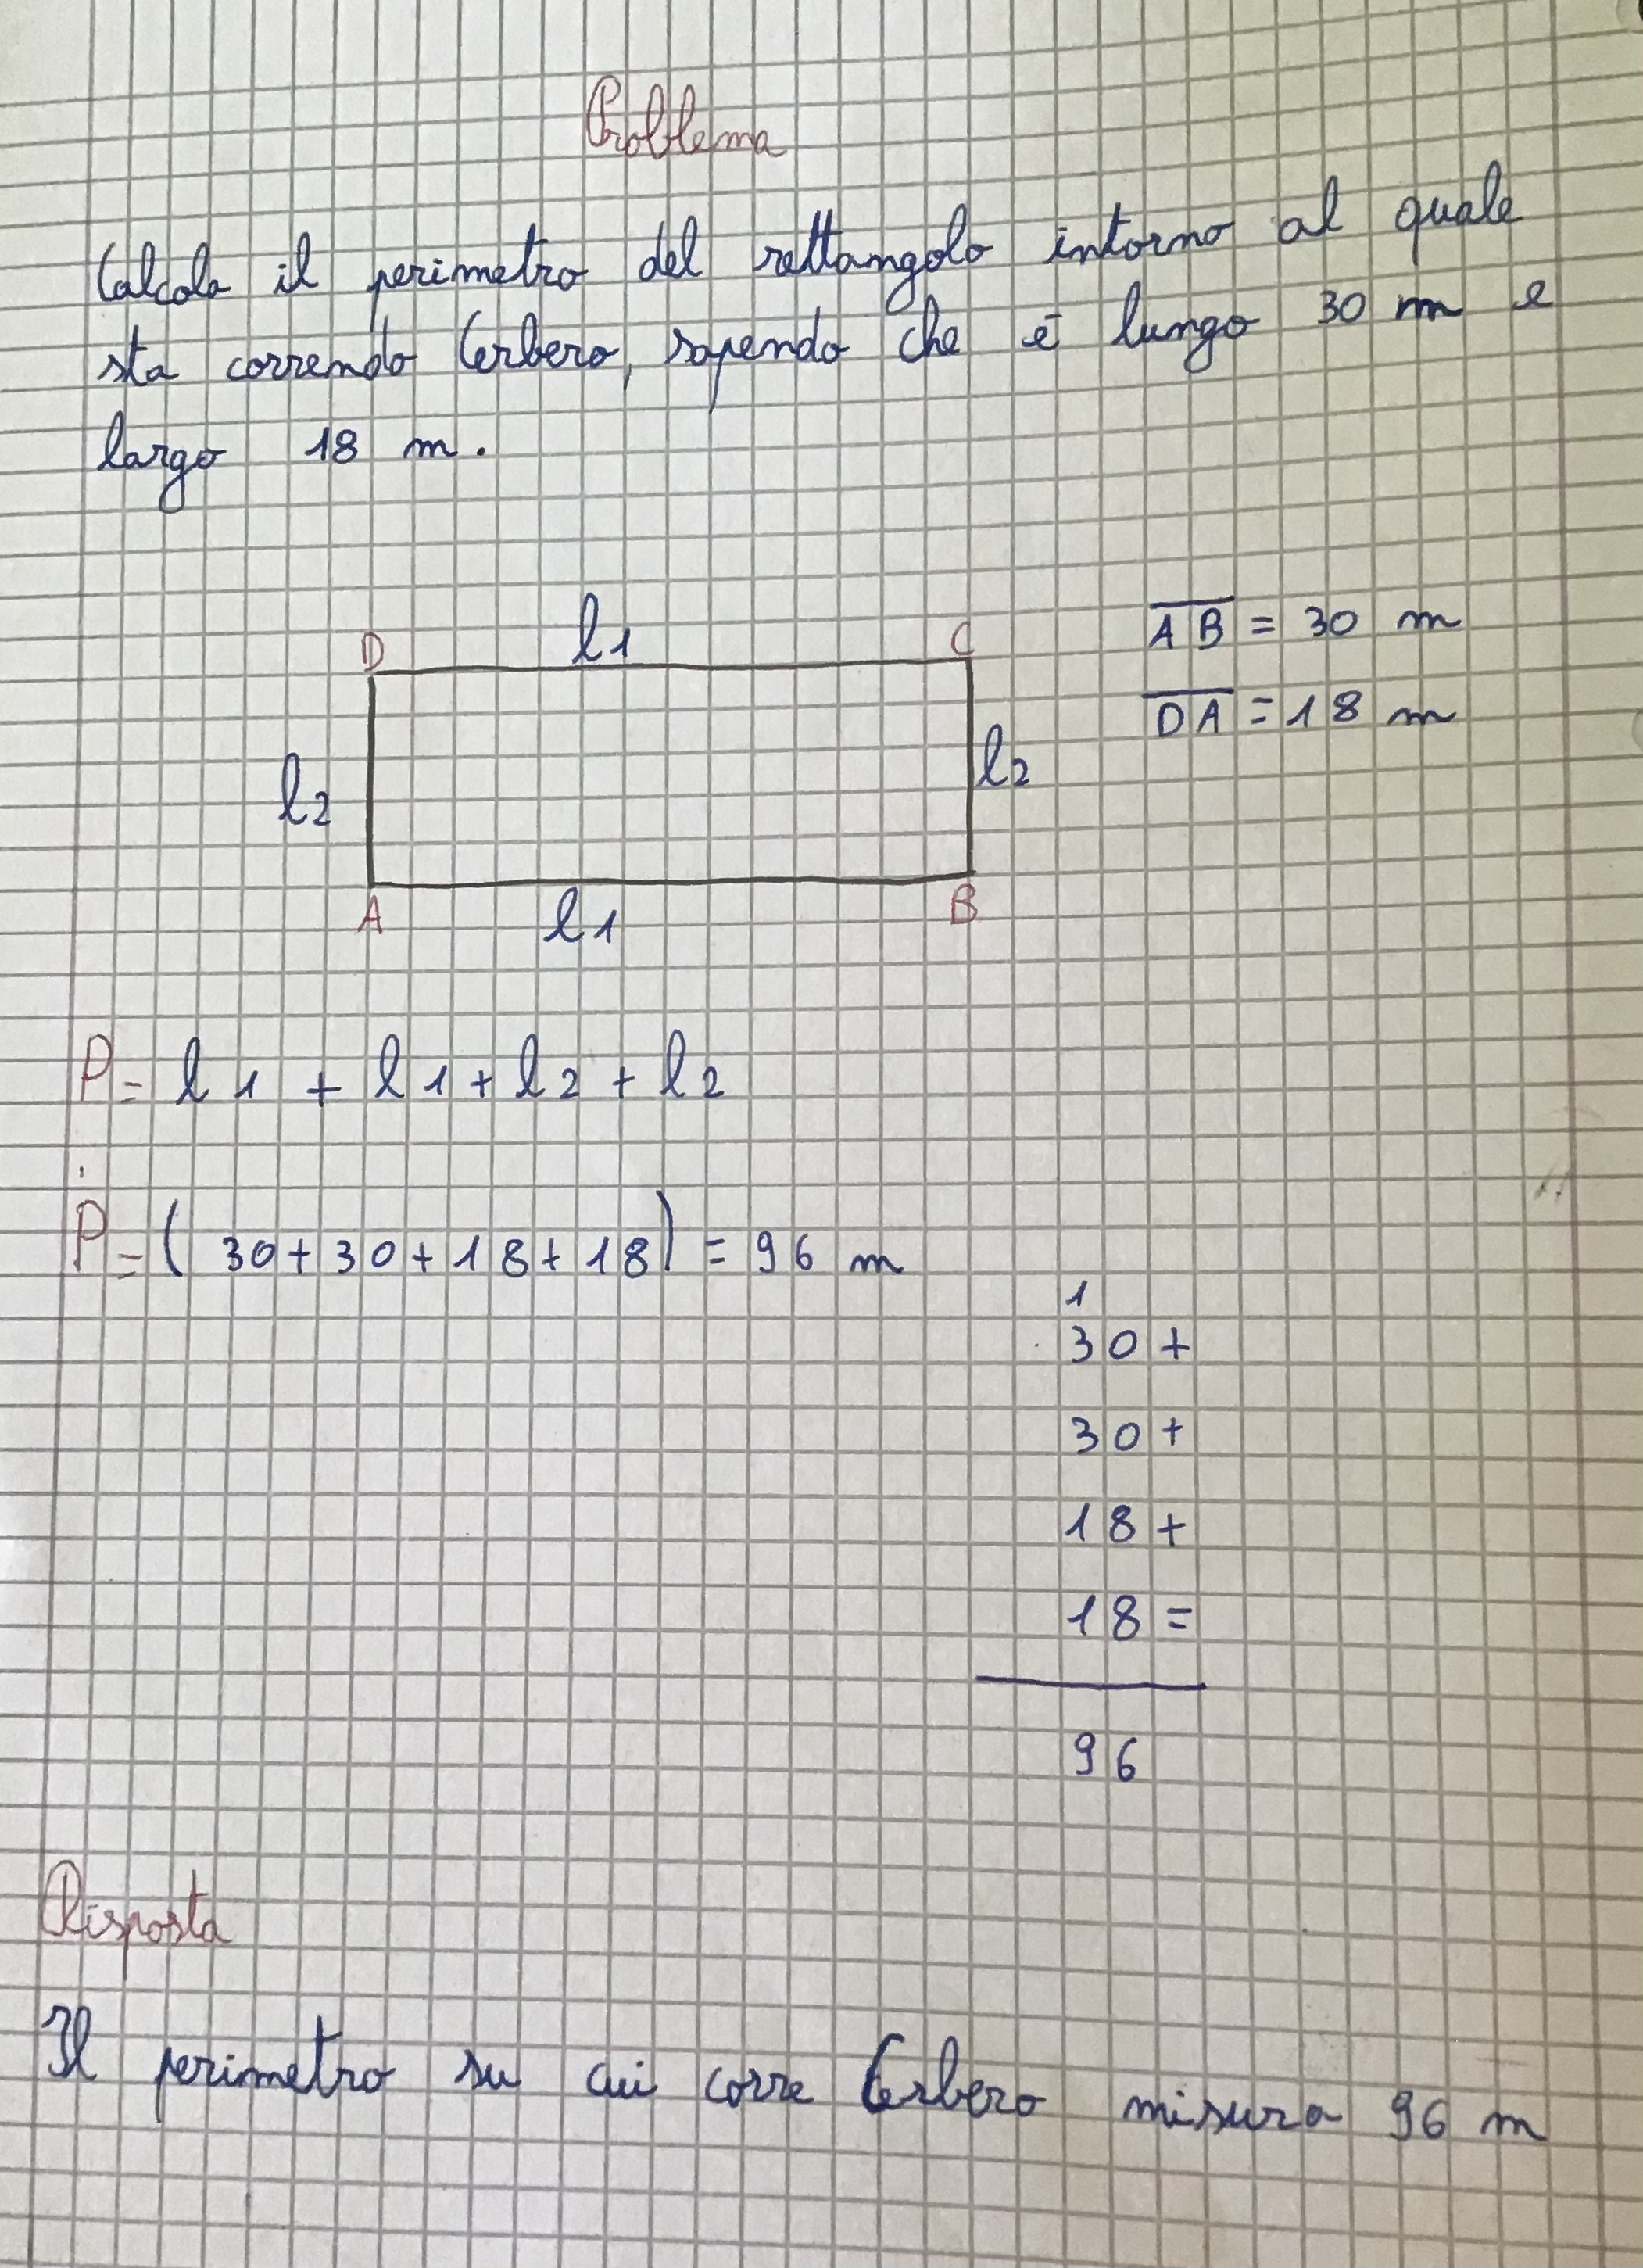 Problema
Calcola il perimetro del rettangolo intorno al quale
sta correndo Cerbero, sapendo che è lungo 30 m e
largo 18 m.
D l1 C
AB = 30 m
DA = 18 m
l2 l2
A l1 B
P = l1 + l1 + l2 + l2
P = (30+30+18+18) = 96 m
1
30+
30+
18+
18=
96
Risposta
Il perimetro su cui corre Cerbero misura 96 m